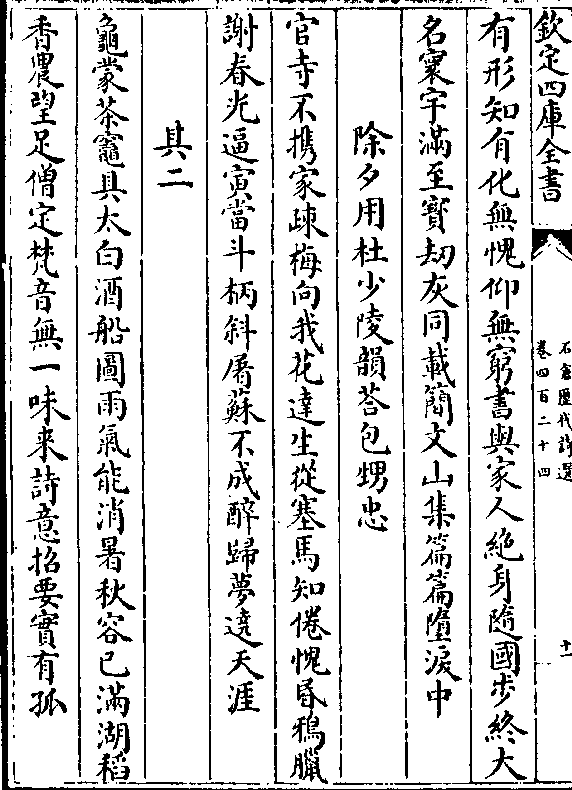 欽定四庫全書
石倉歷代詩選
卷四百二十四
十一
有形知有化無愧仰無窮書與家人絶身隨國步終大
名寰宇滿至寶刼灰同載閲文山集篇篇墮淚中
除夕用杜少陵韻荅包甥忠
官寺不携家疎梅向我花達生從塞馬知倦愧昏鴉臘
謝春光逼寅當斗柄斜屠蘇不成醉歸夢遶天涯
其二
龜蒙茶竈具太白酒船圖雨氣能消暑秋容已滿湖稻
香農望足僧定梵音無一味来詩意招要實有孤